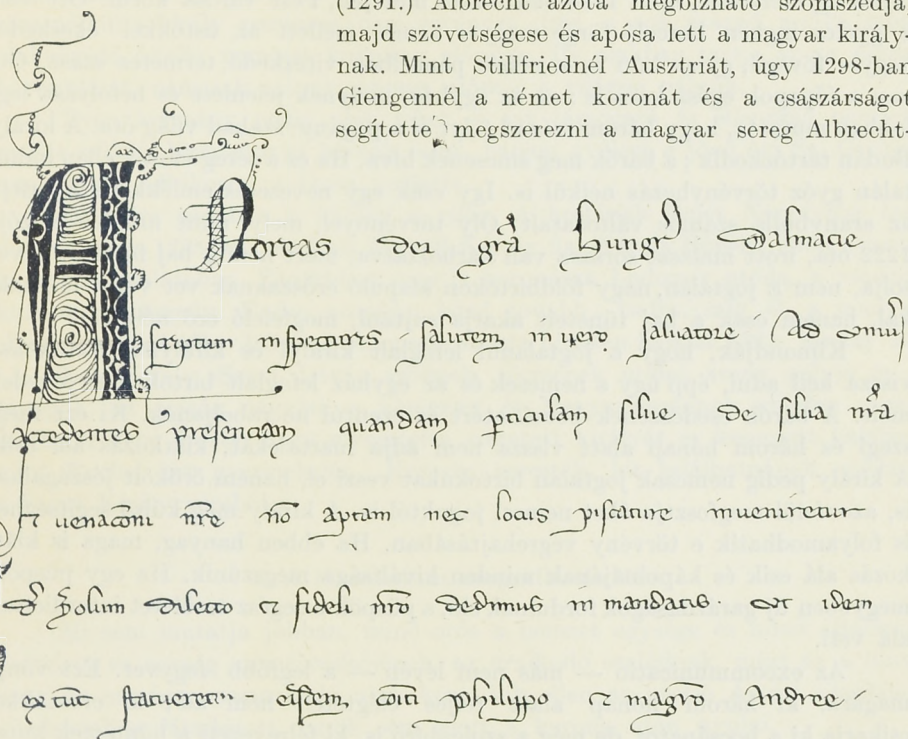 (1291.) Albrecht azóta megbízható szomszédja,
majd szövetségese és apósa lett a magyar király-
nak. Mint Stillfriednél Ausztriát, úgy 1298-ban
Giengennél a német koronát és a császárságot
segítette megszerezni a magyar sereg Albrecht-
ANDreas dei gra Hungr Dalmacie
scriptum inspecturis salutem in vero salvatore Ad
accedentes presenciam quandam particulam silue de silua nra
et uenaconi nre no aptam nec locus piscature inueniretur
dilecto et fideli nro dedimus in mandatis quod idem
ex tunc statueret eisdem comiti philippo et magro Andree